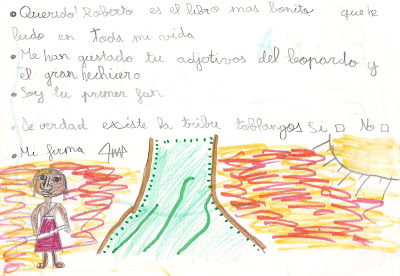 • Querido! Roberto es el libro mas bonito que he
leido en toda mi vida
• Me han gustado tu adjetivos del leopardo y
el gran hechicero
• Soy tu primer fan
• De verdad existe la tribu toblangos Si □ No □
• Mi firma